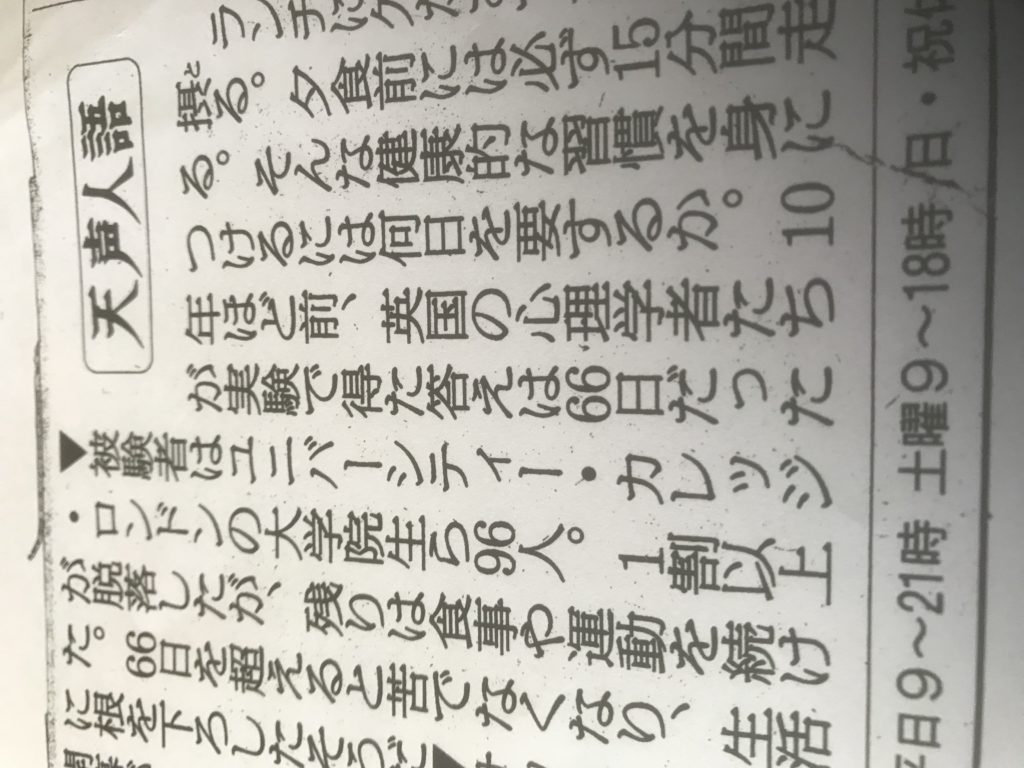 天声人語
ランチに
摂る。夕食前には必ず15分間走
る。そんな健康的な習慣を身に
つけるには何日を要するか。10
年ほど前、英国の心理学者たち
が実験で得た答えは66日だった
▼被験者はユニバーシティー・カレッジ
・ロンドンの大学院生ら96人。1割以上
が脱落したが、残りは食事や運動を続け
た。66日を超えると苦でなくなり、生活
に根を下ろしたそうだ▼
平日9～21時 土曜9～18時/日・祝